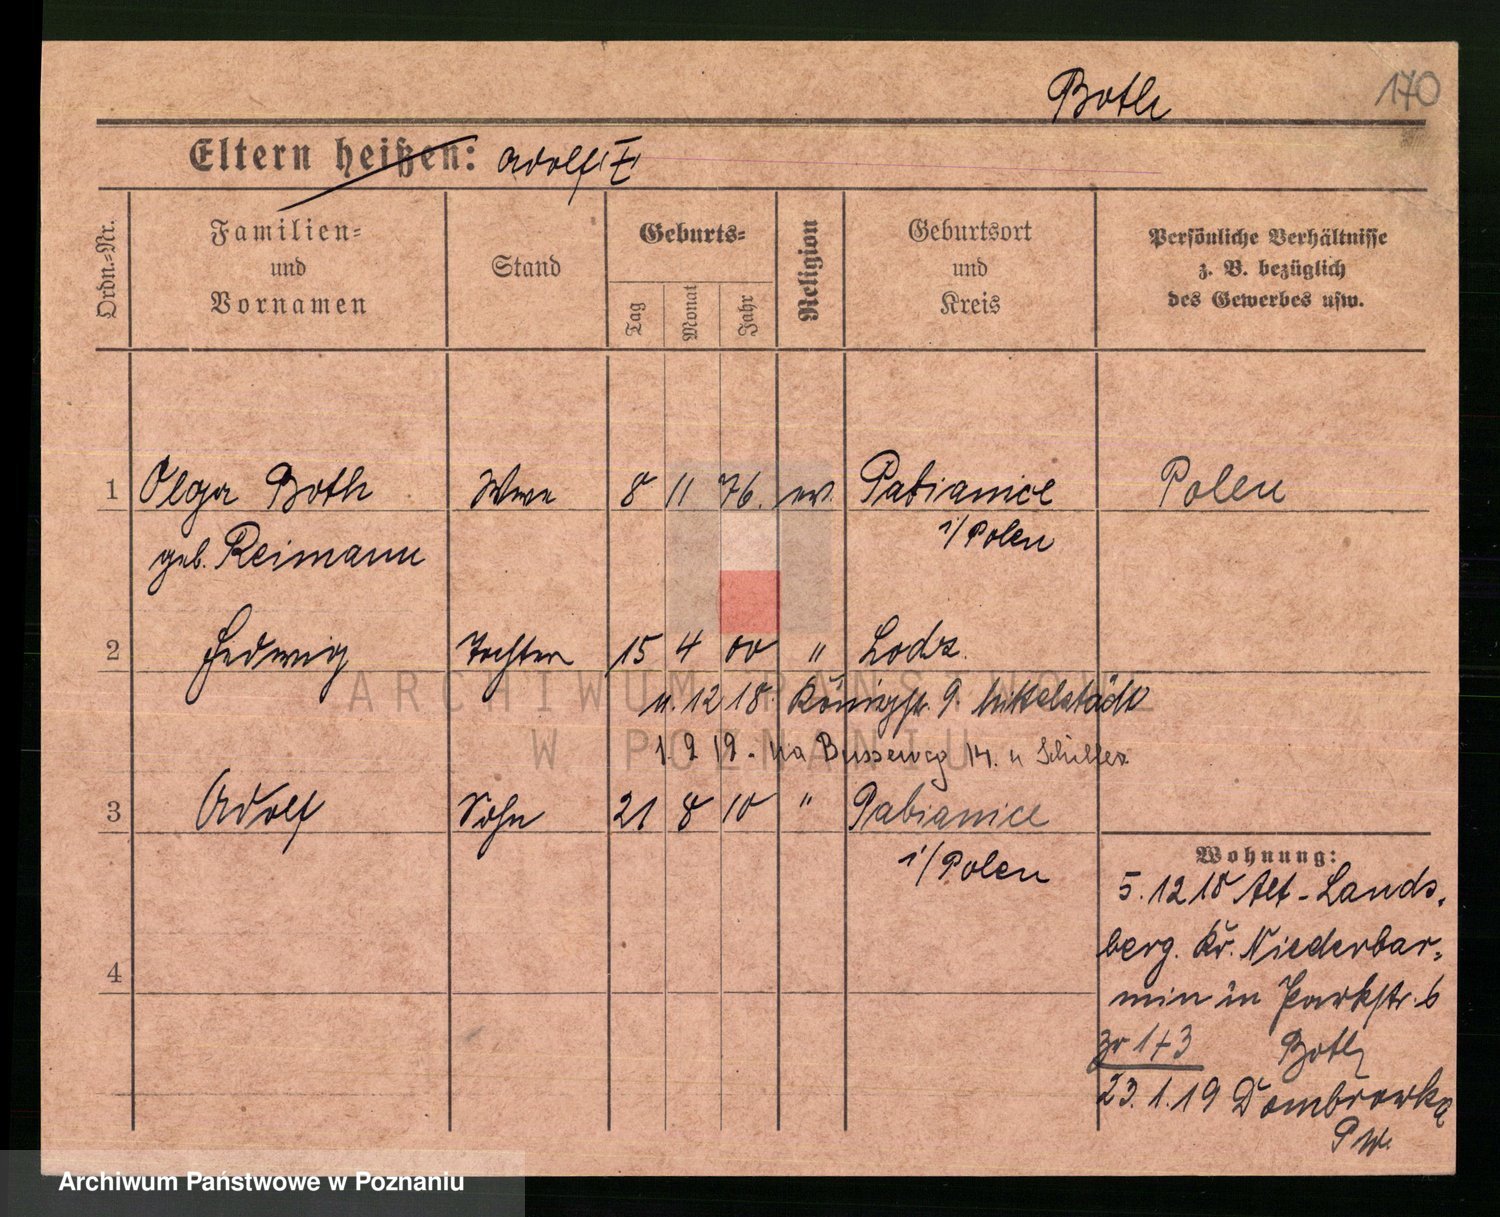 Both 170
Eltern heißen: Adolf I
Ordn.-Nr.
Familien-
und
Vornamen
Stand
Geburts-
Tag
Monat
Jahr
Religion
Geburtsort
und
Kreis
Persönliche Verhältnisse
z. B. bezüglich
des Gewerbes usw.
1 Olga Both Wwe 8 11 76. ev. Pabianice Polen
geb. Reimann i/Polen
2 Hedwig Tochter 15 4 00 " Lodz.
12 18. Königstr. 9. Mittelstädt
1. 9 19. Busseweg 14. Schiller
3 Adolf Sohn 21 8 10 " Pabianice
i/Polen
4
Wohnung:
5. 12 18 Alt-Lands-
berg. Kr. Niederbar-
min in Parkstr. 6
zu 1+3 Both
23. 1. 19 Dombrowka
PW.
ARCHIWUM PAŃSTWOWE
W POZNANIU
Archiwum Państwowe w Poznaniu